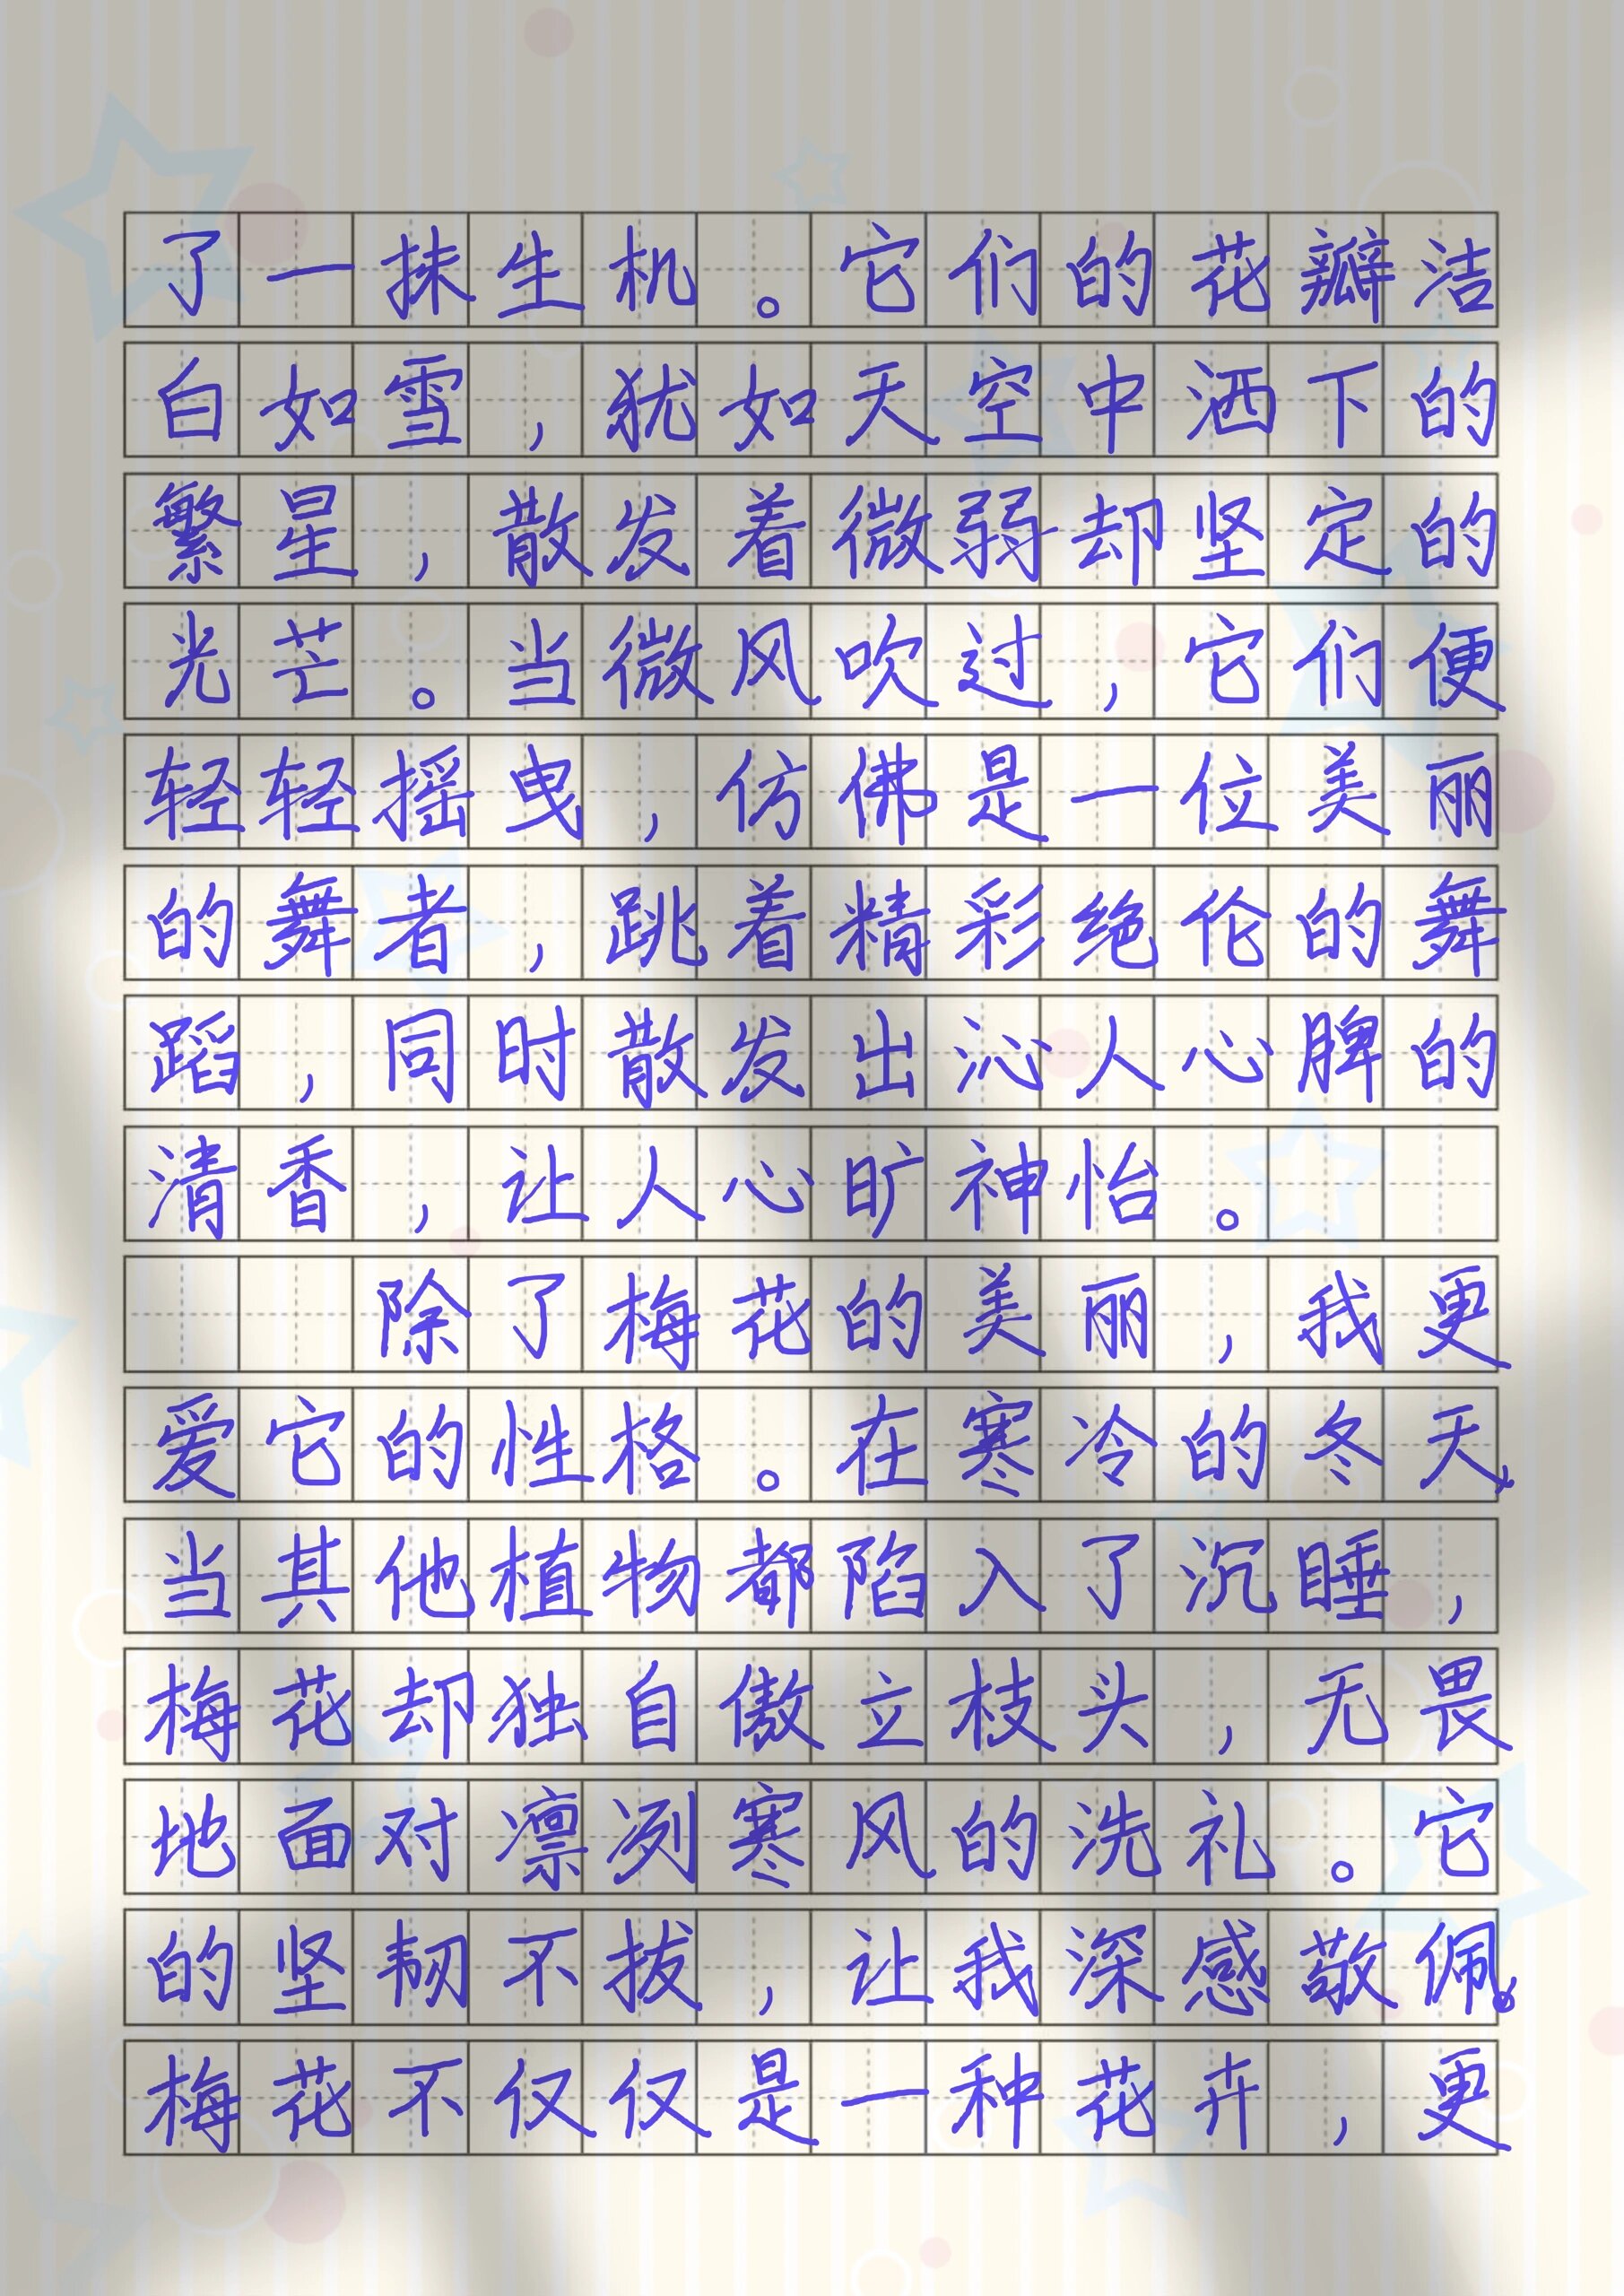 了一抹生机。它们的花瓣洁
白如雪，犹如天空中洒下的
繁星，散发着微弱却坚定的
光芒。当微风吹过，它们便
轻轻摇曳，仿佛是一位美丽
的舞者，跳着精彩绝伦的舞
蹈，同时散发出沁人心脾的
清香，让人心旷神怡。
除了梅花的美丽，我更
爱它的性格。在寒冷的冬天，
当其他植物都陷入了沉睡，
梅花却独自傲立枝头，无畏
地面对凛冽寒风的洗礼。它
的坚韧不拔，让我深感敬佩。
梅花不仅仅是一种花卉，更